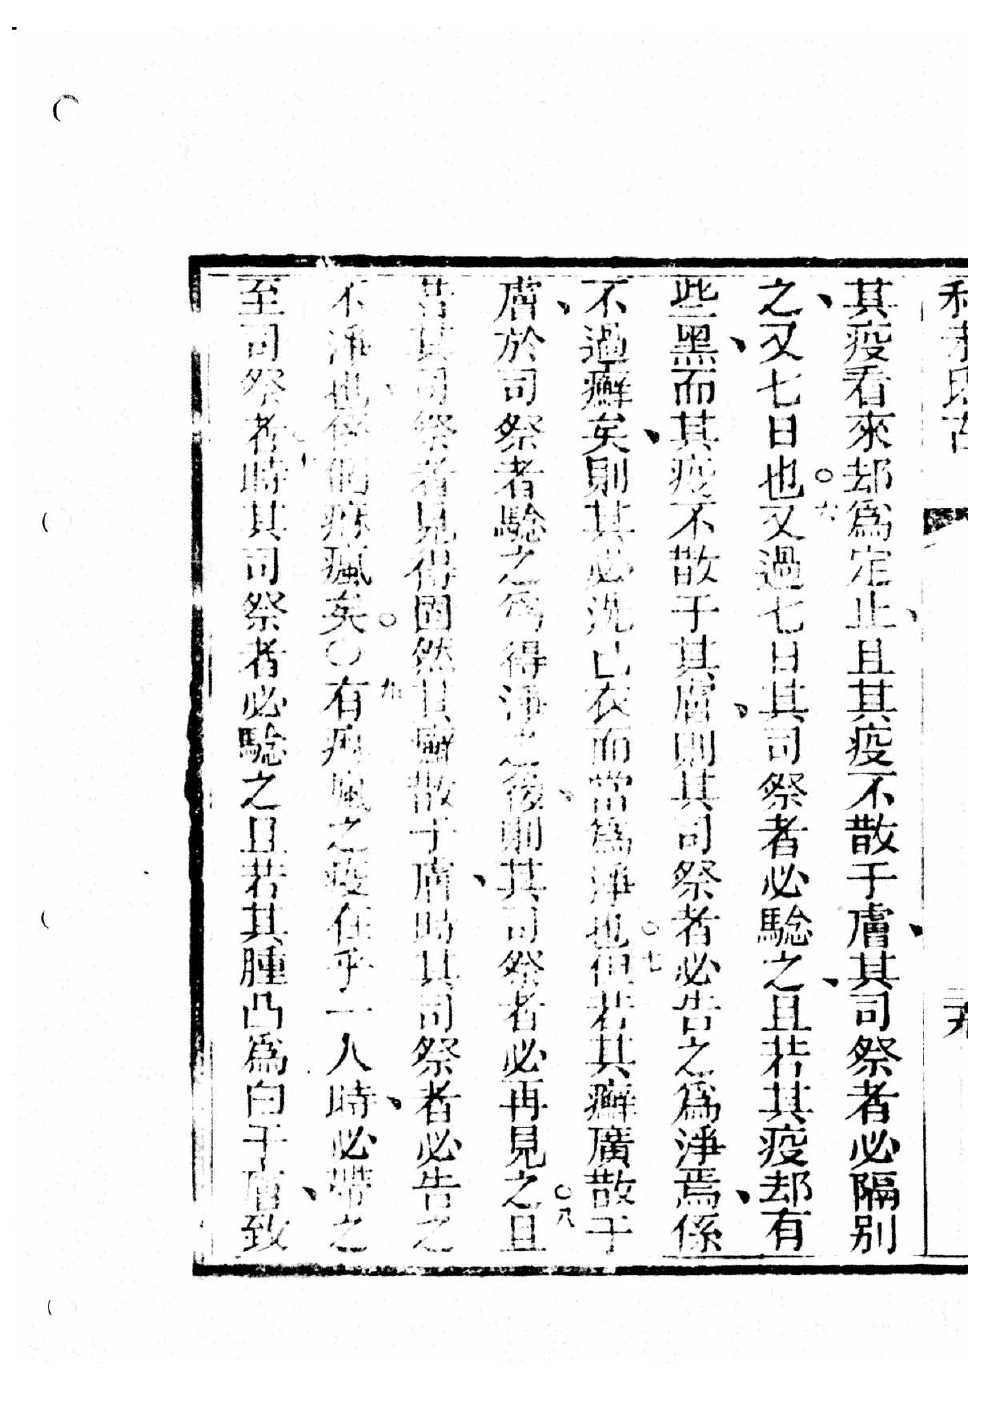 其疫看來却爲定止且其疫不散于膚其司祭者必隔別
之又七日也○六又過七日其司祭者必騐之且若其疫却有
些黑而其疫不散于其膚則其司祭者必告之爲淨焉係
不過癬矣則其必洗己衣而當爲淨也○七但若其癬廣散于
膚於司祭者騐之爲得淨之後則其司祭者必再見之○八且
若其司祭者見得固然其癬散于膚時其司祭者必告之
不淨也係個痳瘋矣○○九有痳瘋之疫在乎一人時必帶之
至司祭者時其司祭者必騐之且若其腫凸爲白于膚致